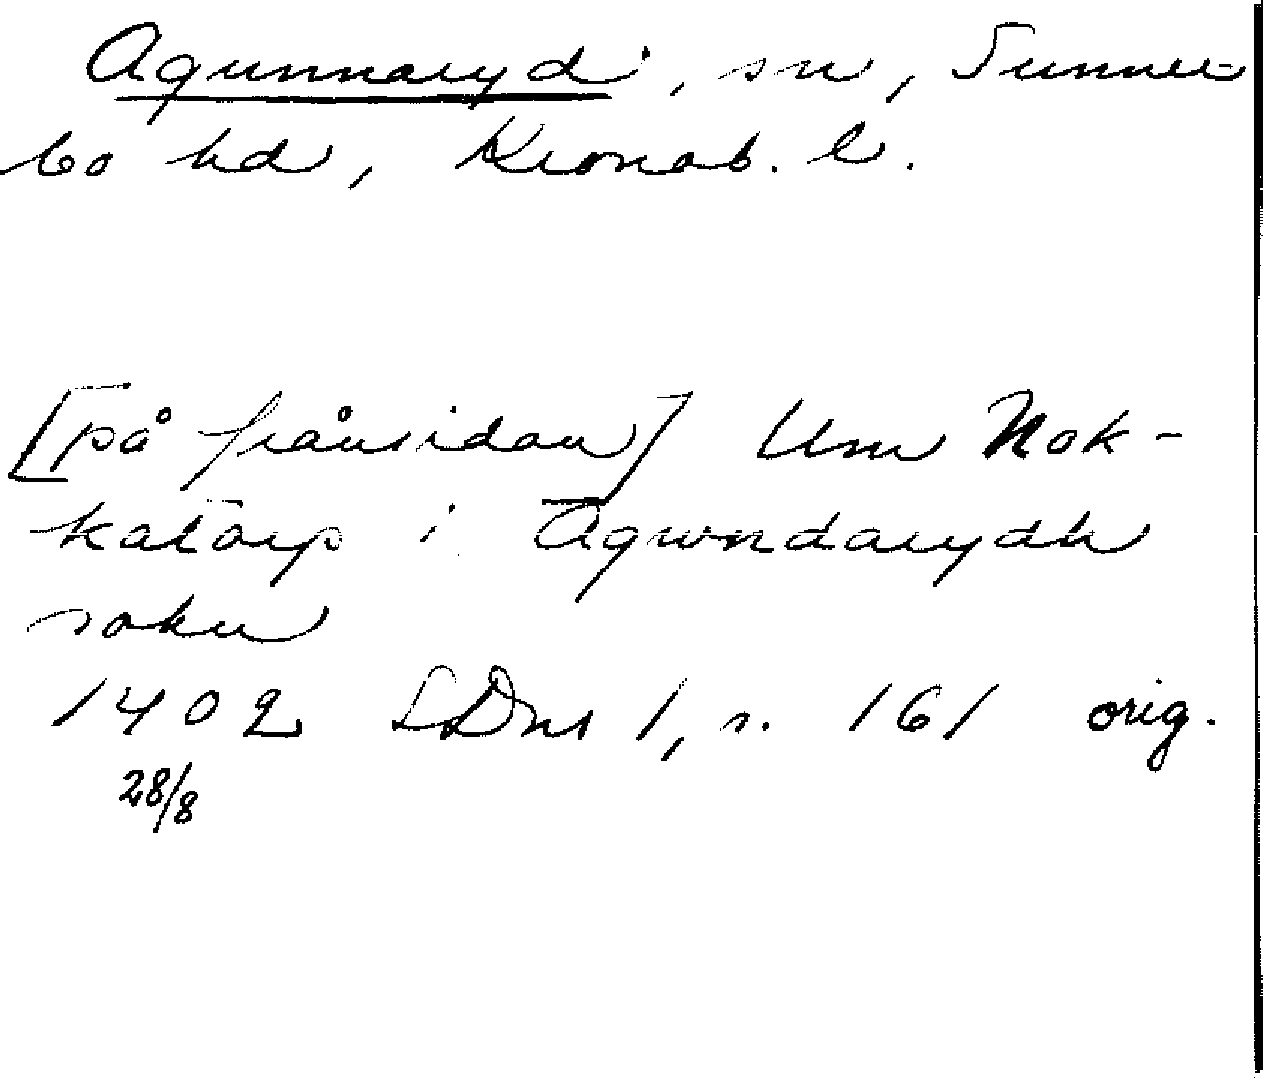 Agunnaryd, sn, Sunner-
bo hd, Kronob. l.
[på frånsidan] Um Nok-
katorp i Agwndarydh
sokn
1402 SDns 1, s. 161 orig.
28/8